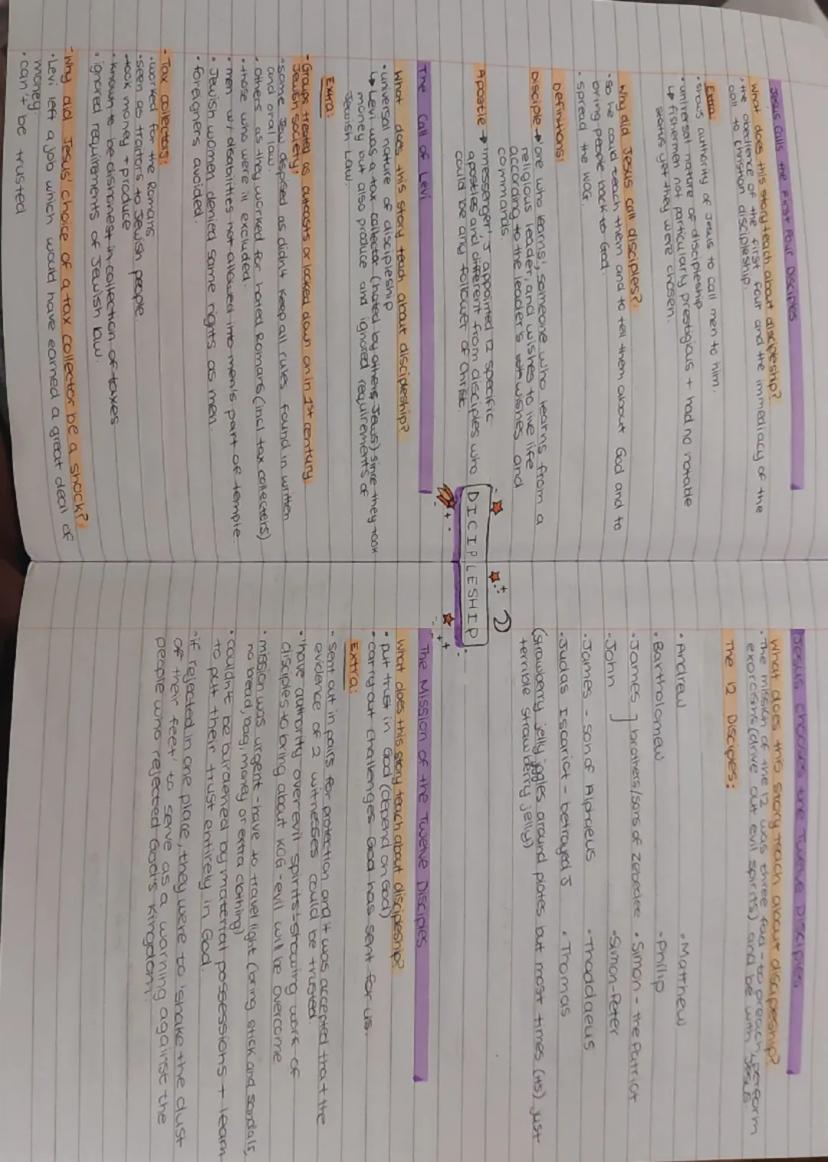 DICIPLESHIP
2)
Jesus calls the First Four Disciples
What does this story teach about discipleship?
• the obedience of the first four and the immediacy of the
call to Christian discipleship.
Extra:
• shows authority of Jesus to call men to him.
• universal nature of discipleship
↳ fishermen not particularly prestigious + had no notable
status yet they were chosen.
Why did Jesus call disciples?
• so he could teach them and to tell them about God and to
bring people back to God.
• spread the KOG.
Defintions:
Disciple → 'one who learns', someone who learns from a
religious leader, and wishes to live life
according to the leader's wishes and
commands.
Apostle → 'messenger', J appointed 12 specific
apostles and different from disciples who
could be any follower of Christ.
The Call of Levi
What does this story teach about discipleship?
• universal nature of discipleship
↳ Levi was a tax collector (hated by others Jews) since they took
money but also produce and ignored requirements of
Jewish Law.
Extra:
• Groups treated as outcasts or looked down on in 1st century
Jewish society:
• some Jew despised as didn't keep all rules found in written
and oral law
• others as they worked for hated Romans (incl tax collectors)
• those who were ill excluded.
• men w/ disabilities not allowed into men's part of temple.
• Jewish women denied same rights as men.
• foreigners avoided
• Tax collectors:
• worked for the Romans
• seen as traitors to Jewish people
• took money + produce
• known to be dishonest in collection of taxes
• ignored requirements of Jewish law
• Why did Jesus' choice of a tax collector be a shock?
• Levi left a job which would have earned a great deal of
money.
• can't be trusted
Jesus chooses the Twelve Disciples
What does this story teach about discipleship?
• The mission of the 12 was three fold - to preach, perform
exorcisms (drive out evil spirits) and be with Jesus
The 12 Disciples:
• Andrew • Matthew
• Bartholomew • Philip
• James ] brothers/sons of Zebedee • Simon - the Patriot
• John • Simon-Peter
• James - son of Alphaeus • Thaddaeus
• Judas Iscariot - betrayed J • Thomas
(strawberry jelly jiggles around plates but most times (+s) just
terrible strawberry jelly)
The Mission of the Twelve Disciples
What does this story teach about discipleship?
• put trust in God (depend on God)
• carry out challenges God has sent for us.
Extra:
• sent out in pairs for protection and it was accepted that the
evidence of 2 witnesses could be trusted
• 'have authority over evil spirits' - showing work of
disciples to bring about KOG - evil will be overcome
• mission was urgent - have to travel light (bring stick and sandals,
no bread, bag, money or extra clothing)
• couldn't be burdened by material possessions + learn
to put their trust entirely in God.
• if rejected in one place, they were to 'shake the dust
of their feet' to serve as a warning against the
people who rejected God's Kingdom.